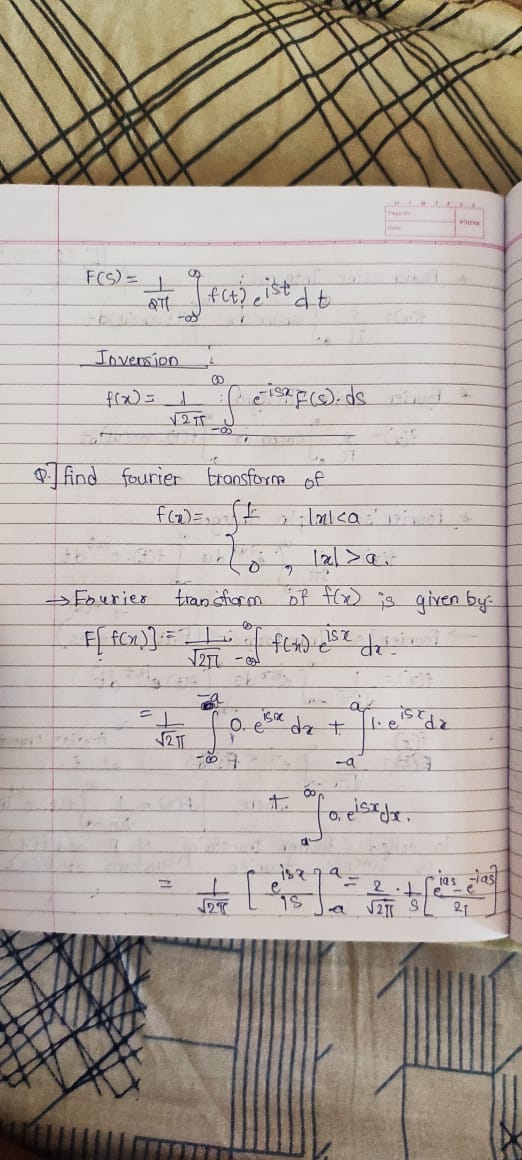 YOUVA
F(s) = 1/2π ∫_{-∞}^{∞} f(t) e^{ist} dt
Inversion :
f(x) = 1/√2π ∫_{-∞}^{∞} e^{-isx} F(s). ds
Q.] find fourier transform of
f(x) = { 1 , |x| < a
0 , |x| > a.
→ Fourier transform of f(x) is given by:-
F[f(x)] = 1/√2π ∫_{-∞}^{∞} f(x) e^{isx} dx.
= 1/√2π ∫_{-∞}^{-a} 0. e^{isx} dx + ∫_{-a}^{a} 1. e^{isx} dx
+ ∫_{a}^{∞} 0. e^{isx} dx.
= 1/√2π [e^{isx}/is]_{-a}^{a} = 2/√2π . 1/s [e^{ias} - e^{-ias}/2i]